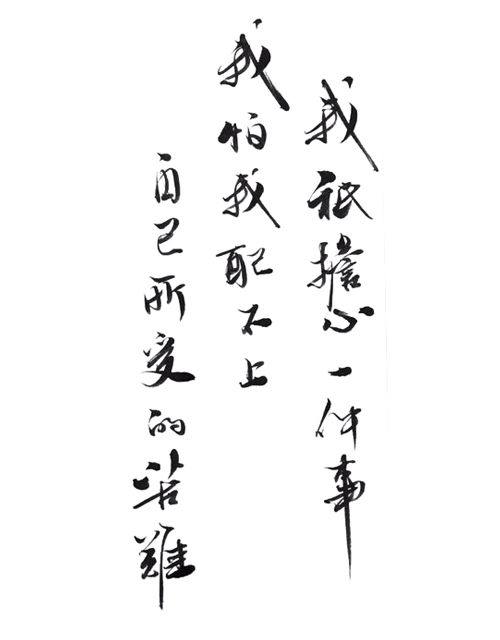 我祇擔心一件事
我怕我配不上
自己所受的苦難